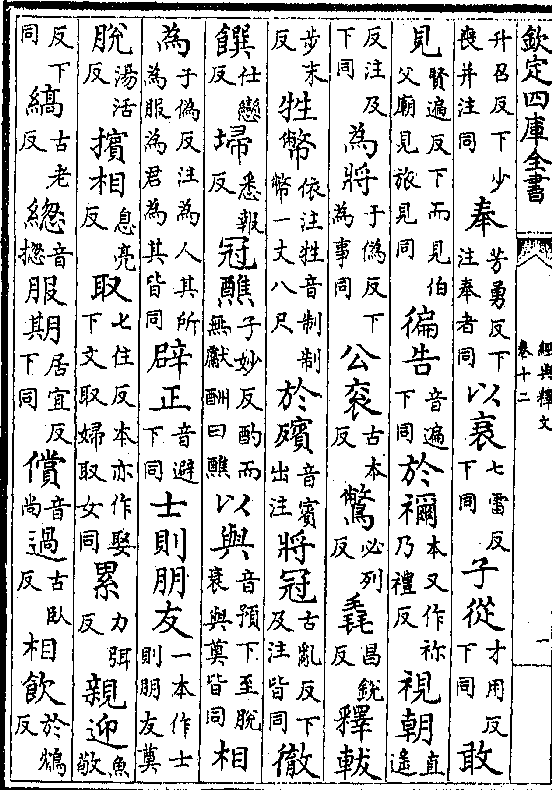 欽定四庫全書
經典釋文
卷十二
一
升召反下少喪并注同奉芳勇反下注奉者同以衰七雷反下同子從才用反下同敢
見賢遍反下而見伯父廟見旅見同徧告音遍下同於禰本又作祢乃禮反視朝直遙
反注及下同為將于偽反下為事同公衮古本反驚必列反毳昌銳反釋軷
步末反牲幣依注牲音制制幣一丈八尺於殯音賓出注將冠古亂反下及注皆同徹
饌仕戀反埽悉報反冠醮子妙反酌而無獻酬曰醮以與音預下至脫衰與奠皆同相
為于偽反注為人其所為服為君為其皆同辟正音避下同士則朋友一本作士則朋友奠
脫湯活反擯相息亮反取七住反本亦作娶下文取婦取女同累力弭反親迎魚敬
反下同縞古老反緫音摠服期居宜反下同償音尚過古臥反相飲於鴆反